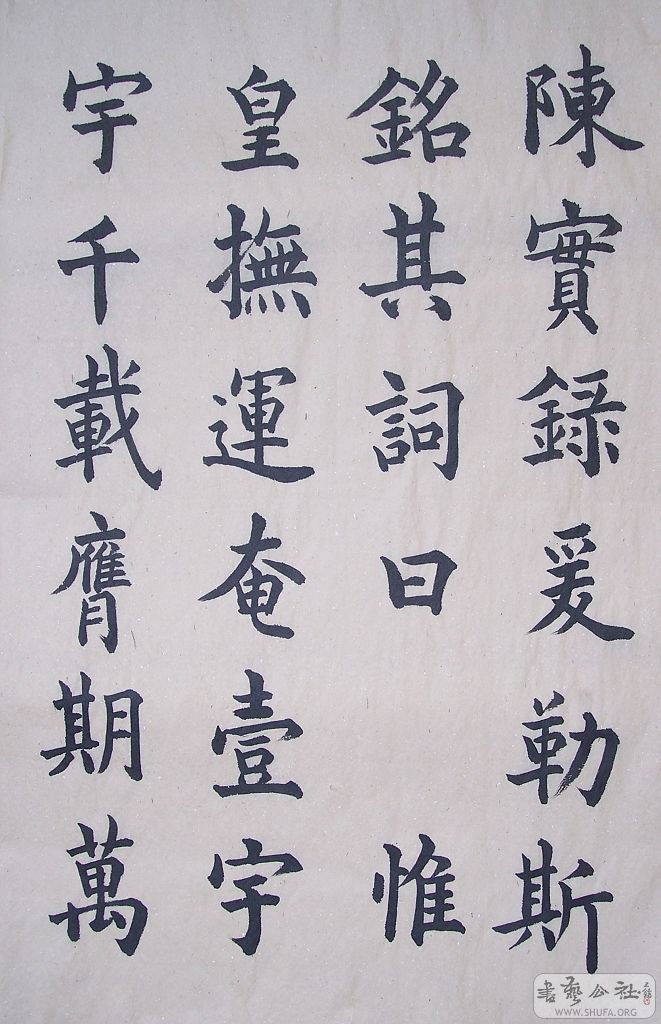 陳實錄爰勒斯
銘其詞曰 惟
皇撫運奄壹宇
宇千載膺期萬
書藝公社
WWW.SHUFA.ORG